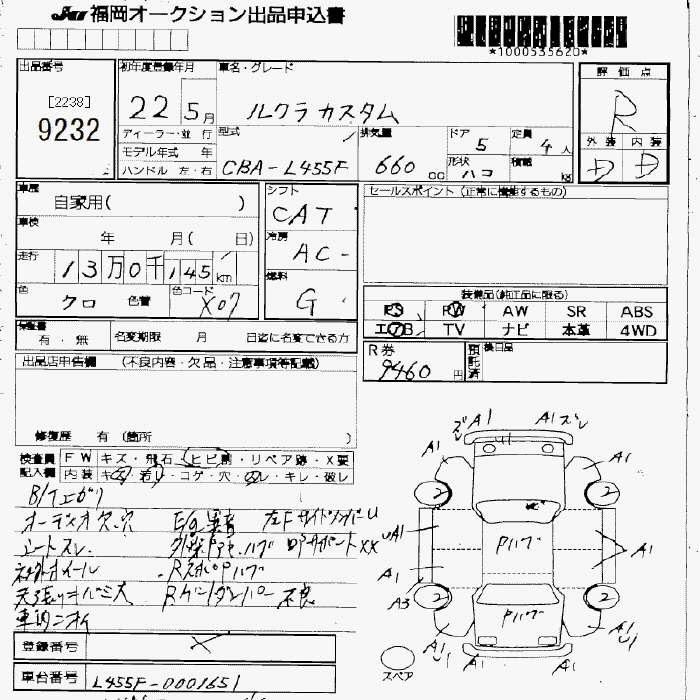 JAA 福岡オークション出品申込書
*1000535620*
出品番号
[2238]
9232
初年度登録年月
22 5月
車名・グレード
ルクラ カスタム
評価点
R
外装 内装
D D
ディーラー・並行
モデル年式 年
ハンドル 左・右
型式
CBA-L455F
排気量
660 cc
ドア
5
定員
4人
形状
ハコ
積載
kg
車歴
自家用( )
車検
年 月( 日)
走行
13万0千145km
色
クロ 色替
色コード
X07
シフト
CAT
冷房
AC
燃料
G
セールスポイント(正常に機能するもの)
装備品(純正品に限る)
PS PW AW SR ABS
エアB TV ナビ 本革 4WD
保証書
有・無
名変期限 月 日迄に名変できる方
R券
9460円
預託済
後日品
出品店申告欄 (不良内容・欠品・注意事項等記載)
修復歴 有 (箇所 )
検査員記入欄
FW キズ・飛石・ヒビ割・リペア跡・X要
内装 キズ・若れ・コゲ・穴・スレ・キレ・破レ
オーディオ欠、穴 E/G異音
シートスレ
Rゲートダンパー不良
車内ニオイ
登録番号
車台番号
L455F-0001651
A1 A1 ズレ
U1
A1 A1
2 2
A1
Pハゲ
A1 A1
A3 2 2
Pハゲ
A1 U1 A1 U1
A1 A1
スペア